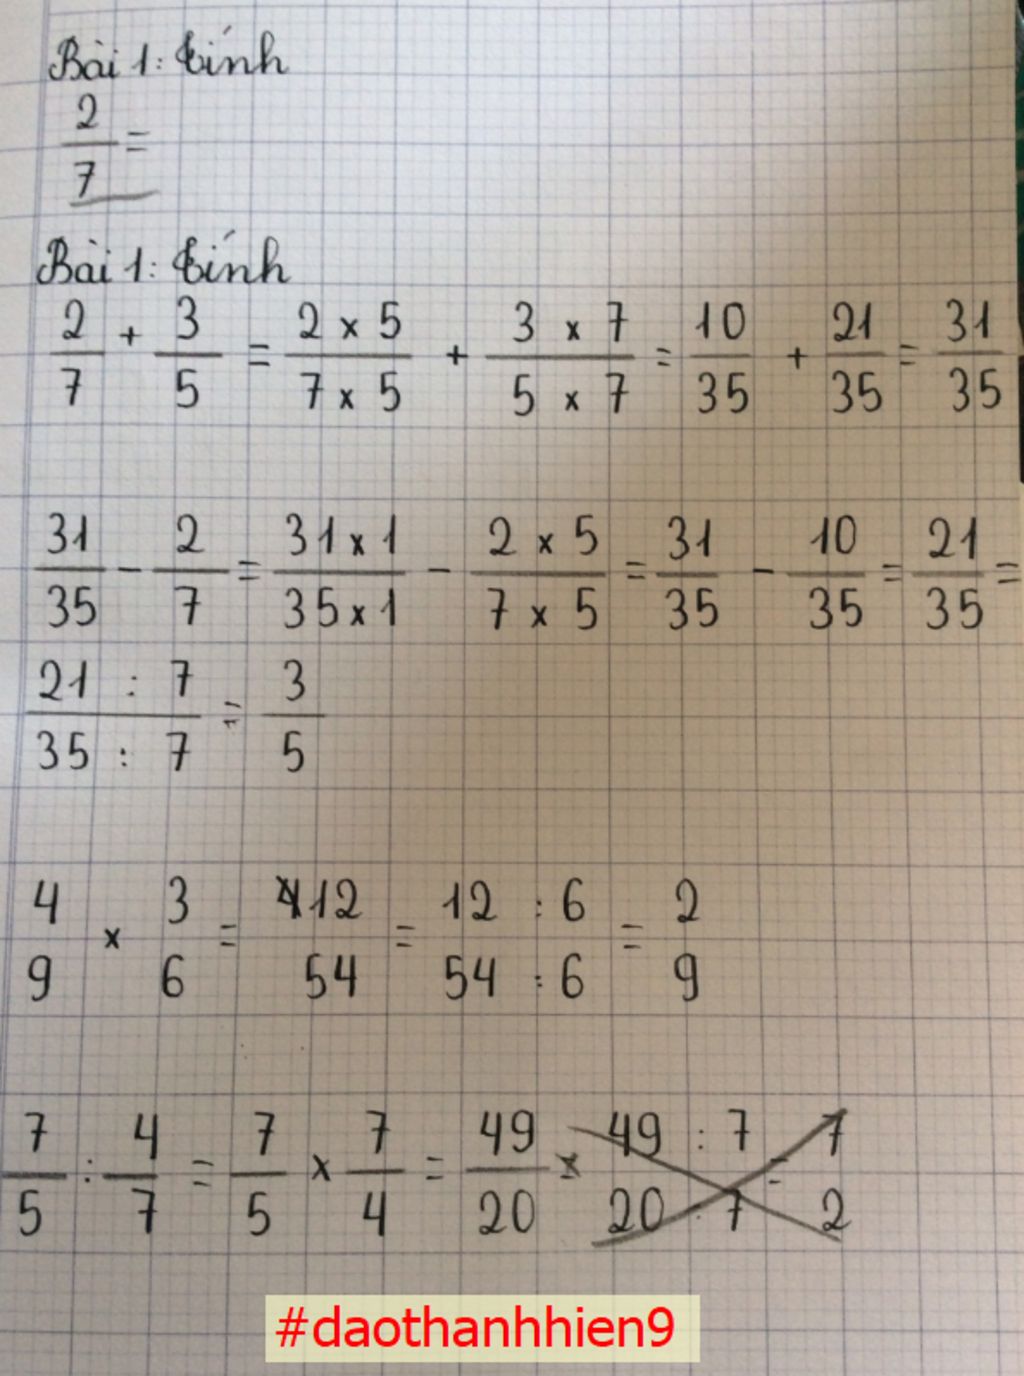 Bài 1: Tính
2/7 =
Bài 1: Tính
2/7 + 3/5 = 2 x 5/7 x 5 + 3 x 7/5 x 7 = 10/35 + 21/35 = 31/35
31/35 - 2/7 = 31 x 1/35 x 1 - 2 x 5/7 x 5 = 31/35 - 10/35 = 21/35 =
21 : 7/35 : 7 = 3/5
4/9 x 3/6 = 12/54 = 12 : 6/54 : 6 = 2/9
7/5 : 4/7 = 7/5 x 7/4 = 49/20 = 49 : 7/20 : 7 = 7/2
#daothanhhien9